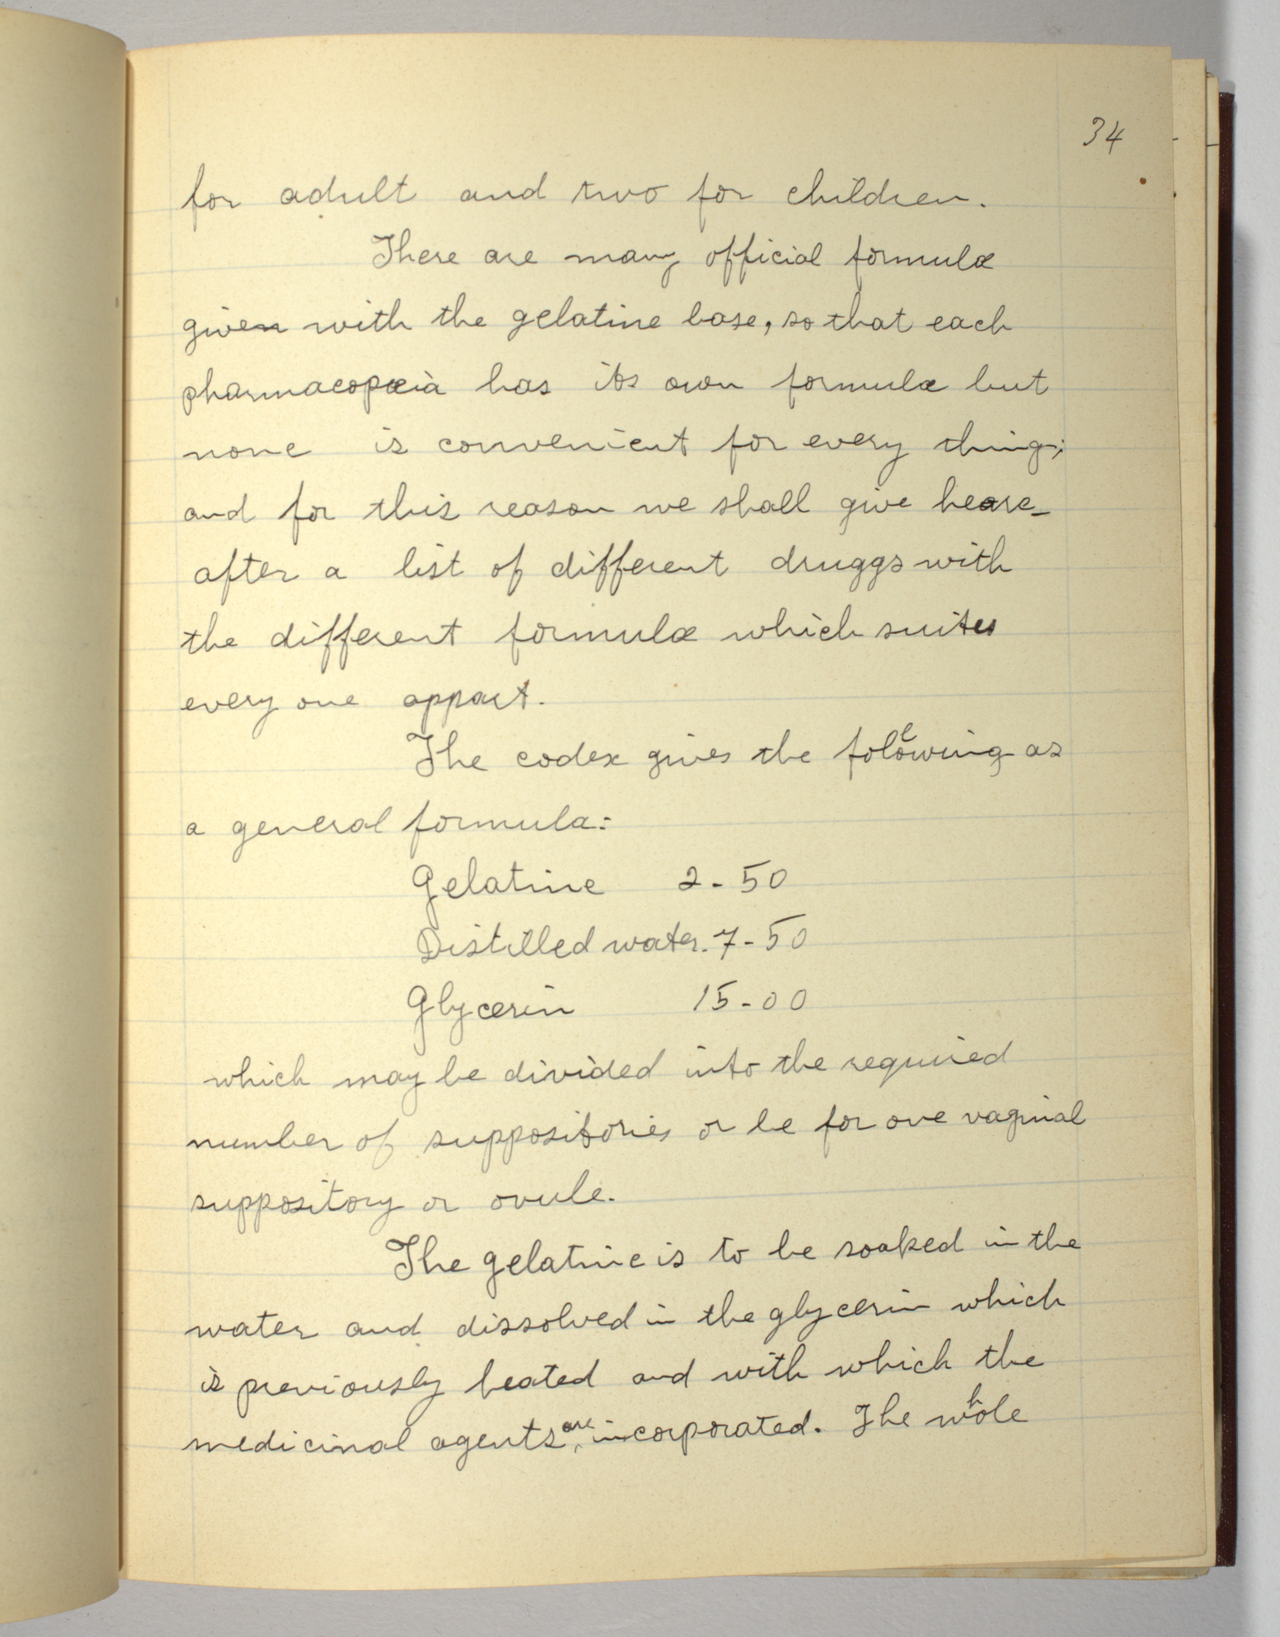 34
for adult and two for children.
There are many official formulæ
given with the gelatine base, so that each
pharmacopœia has its own formulæ but
none is convenient for every thing;
and for this reason we shall give heare-
after a list of different druggs with
the different formulæ which suites
every one appart.
The codex gives the following as
a general formula:
Gelatine 2-50
Distilled water. 7-50
Glycerin 15-00
which may be divided into the required
number of suppositories or be for one vaginal
suppository or ovule.
The gelatine is to be soaked in the
water and dissolved in the glycerin which
is previously heated and with which the
medicinal agents are incorporated. The whole